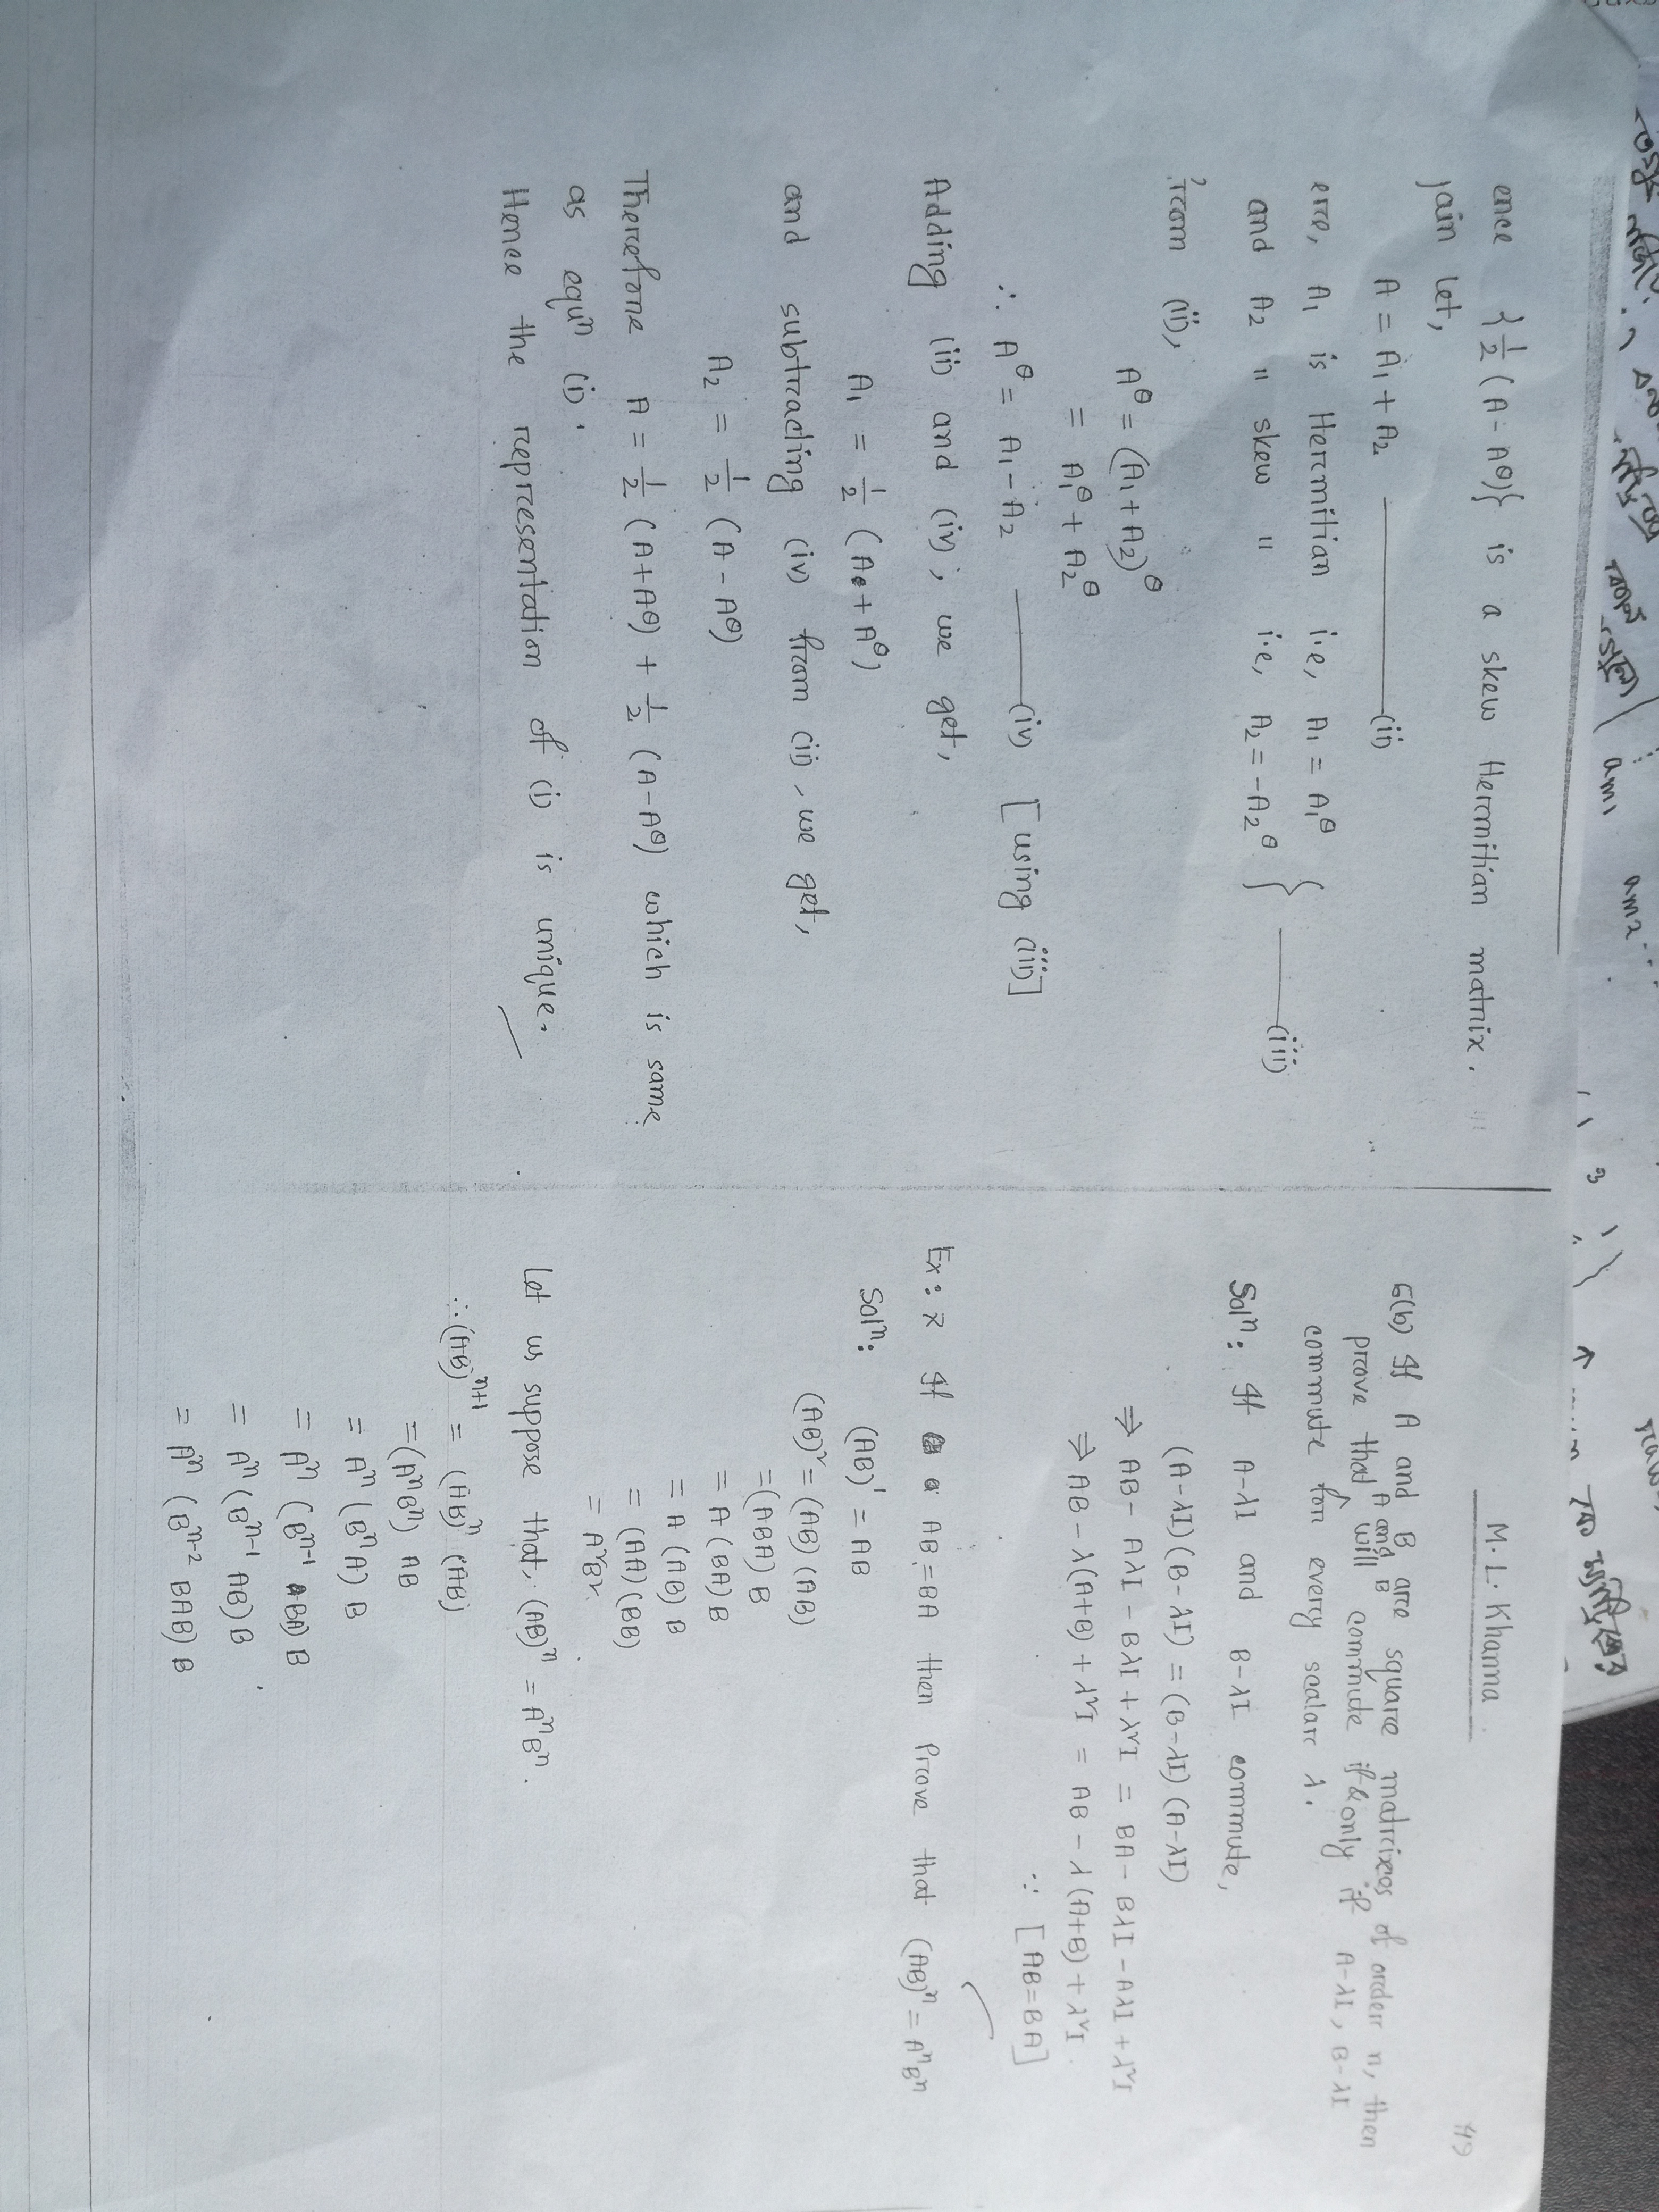 am1 am2
ence {1/2 (A - A^θ)} is a skew Hermitian matrix.
jain let,
A = A₁ + A₂ ——— (ii)
ere, A₁ is Hermitian i.e, A₁ = A₁^θ
and A₂ " skew " i.e, A₂ = -A₂^θ } ——— (iii)
from (ii),
A^θ = (A₁ + A₂)^θ
= A₁^θ + A₂^θ
∴ A^θ = A₁ - A₂ ——— (iv) [using (iii)]
Adding (ii) and (iv), we get,
A₁ = 1/2 (A + A^θ)
and subtracting (iv) from (ii), we get,
A₂ = 1/2 (A - A^θ)
Therefore A = 1/2 (A+A^θ) + 1/2 (A-A^θ) which is same
as equⁿ (i).
Hence the representation of (i) is unique.
M. L. Khanna
49
6(b) If A and B are square matrixces of order n, then
prove that A and B will commute if & only if A-λI, B-λI
commute for every scalar λ.
Solⁿ: If A-λI and B-λI commute,
(A-λI) (B-λI) = (B-λI) (A-λI)
⇒ AB - AλI - BλI + λ²I = BA - BλI - AλI + λ²I
⇒ AB - λ(A+B) + λ²I = AB - λ(A+B) + λ²I
∵ [AB=BA]
Ex: 7 If AB = BA then Prove that (AB)ⁿ = AⁿBⁿ
Solⁿ: (AB)¹ = AB
(AB)² = (AB) (AB)
= (ABA) B
= A (BA) B
= A (AB) B
= (AA) (BB)
= A²B².
Let us suppose that, (AB)ⁿ = AⁿBⁿ.
∴ (AB)ⁿ⁺¹ = (AB)ⁿ (AB)
= (AⁿBⁿ) AB
= Aⁿ (BⁿA) B
= Aⁿ (Bⁿ⁻¹ BA) B
= Aⁿ (Bⁿ⁻¹ AB) B
= Aⁿ (Bⁿ⁻² BAB) B